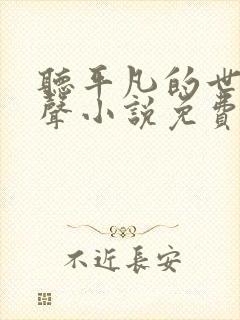 聽平凡的世
聲小說免費
不近長安